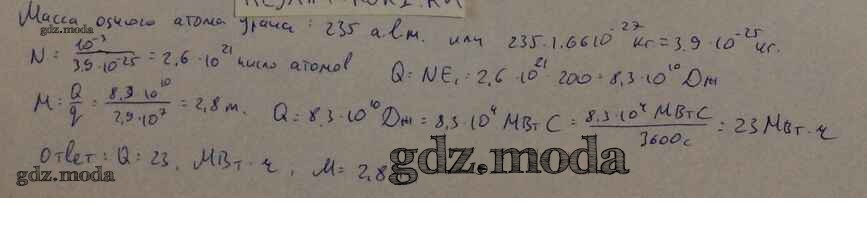 Масса одного атома урана: 235 а.е.м. или 235·1.66·10⁻²⁷ кг = 3.9·10⁻²⁵ кг.
gdz.moda
N = 10⁻³ / 3.9·10⁻²⁵ = 2,6·10²¹ число атомов
Q = NE₁ = 2,6·10²¹·200 = 8,3·10¹⁰ Дж
M = Q/q = 8,3·10¹⁰ / 2,9·10⁷ = 2,8 т.
Q = 8,3·10¹⁰ Дж = 8,3·10⁴ МВт С = 8,3·10⁴ МВт С / 3600 с = 23 МВт·ч
Ответ: Q = 23, МВт·ч; M = 2,8
gdz.moda
gdz.moda